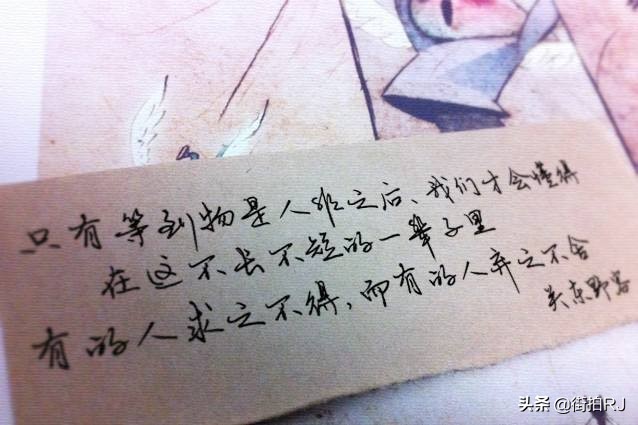 只有等到物是人非之后、我们才会懂得
在这不长不短的一辈子里
有的人求之不得，而有的人弃之不舍
关东野客
头条 @街拍RJ